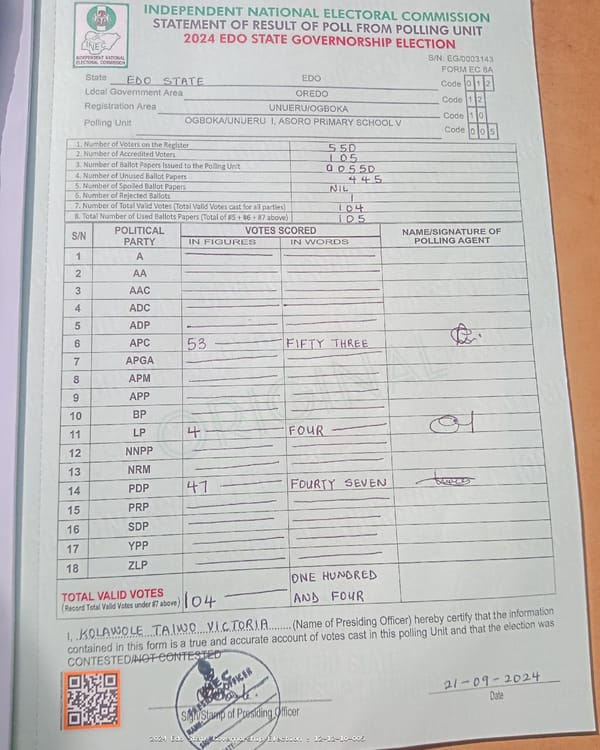 INDEPENDENT NATIONAL ELECTORAL COMMISSION
STATEMENT OF RESULT OF POLL FROM POLLING UNIT
2024 EDO STATE GOVERNORSHIP ELECTION
INEC
INDEPENDENT NATIONAL
ELECTORAL COMMISSION
S/N: EG/0003143
FORM EC 8A
State EDO STATE EDO Code 0 1 2
Local Government Area OREDO Code 1 2
Registration Area UNUERU/OGBOKA Code 1 0
Polling Unit OGBOKA/UNUERU I, ASORO PRIMARY SCHOOL V Code 0 0 5
1. Number of Voters on the Register 550
2. Number of Accredited Voters 105
3. Number of Ballot Papers Issued to the Polling Unit 00550
4. Number of Unused Ballot Papers 445
5. Number of Spoiled Ballot Papers NIL
6. Number of Rejected Ballots 1
7. Number of Total Valid Votes (Total Valid Votes cast for all parties) 104
8. Total Number of Used Ballots Papers (Total of #5 + #6 + #7 above) 105
S/N POLITICAL PARTY VOTES SCORED NAME/SIGNATURE OF POLLING AGENT
IN FIGURES IN WORDS
1 A
2 AA
3 AAC
4 ADC
5 ADP
6 APC 53 FIFTY THREE
7 APGA
8 APM
9 APP
10 BP
11 LP 4 FOUR
12 NNPP
13 NRM
14 PDP 47 FOURTY SEVEN
15 PRP
16 SDP
17 YPP
18 ZLP
TOTAL VALID VOTES
(Record Total Valid Votes under #7 above) 104 ONE HUNDRED AND FOUR
I, KOLAWOLE TAIWO VICTORIA (Name of Presiding Officer) hereby certify that the information
contained in this form is a true and accurate account of votes cast in this polling Unit and that the election was
CONTESTED/NOT CONTESTED
Sign/Stamp of Presiding Officer
21-09-2024
Date
ORIGINAL
2024 Edo State Governorship Election : 12-12-10-005